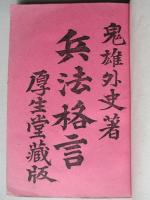 鬼雄外史著
兵法格言
厚生堂蔵版